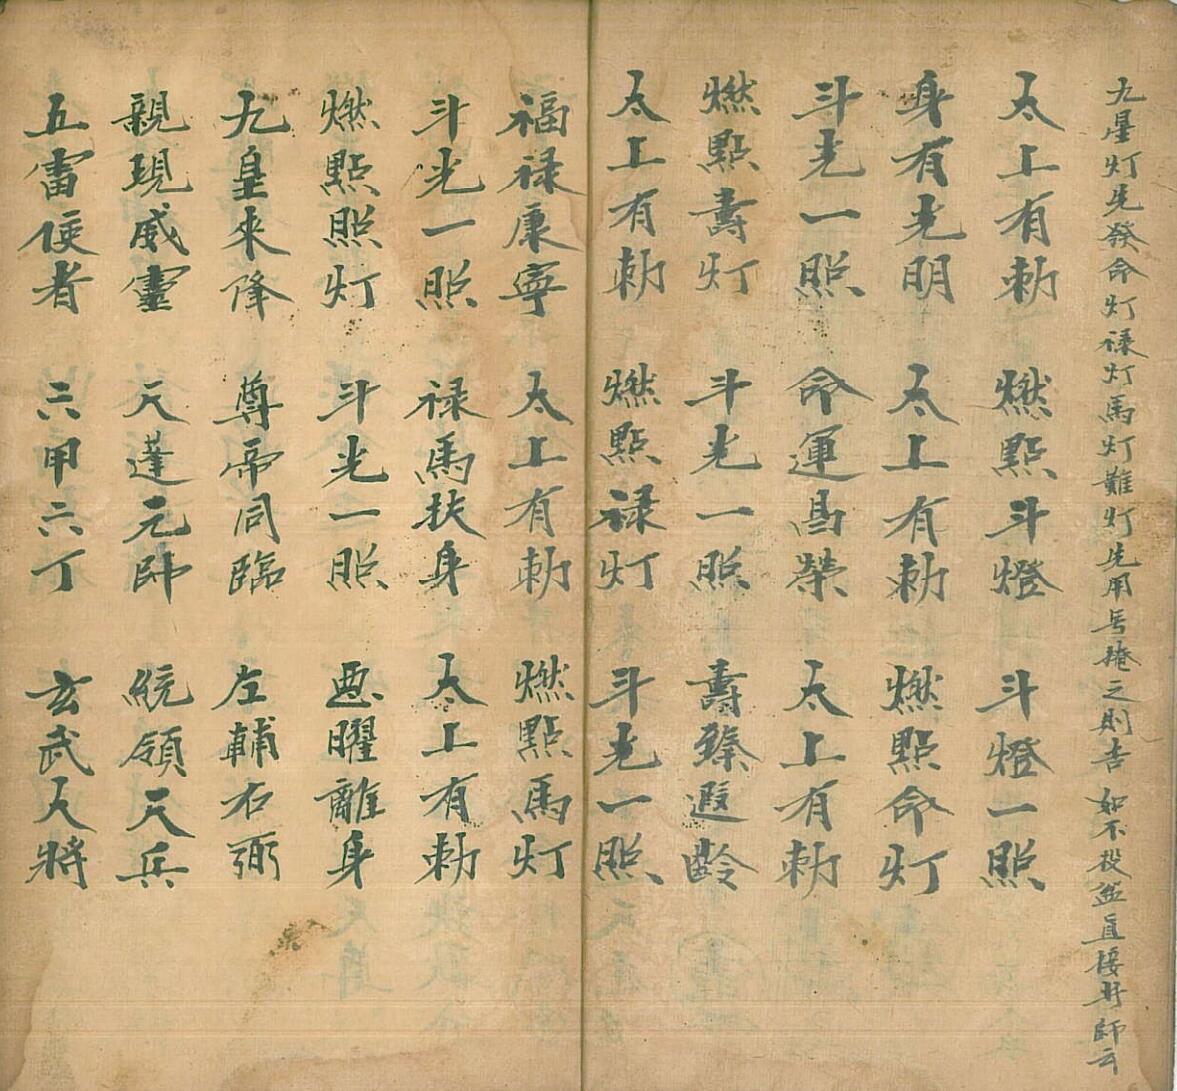 九星灯先發命灯禄灯馬灯難灯先用 掩之則吉如不投盆直接 師云
太上有勅 燃點斗燈 斗燈一照
身有光明 太上有勅 燃點命灯
斗光一照 命運昌榮 太上有勅
燃點壽灯 斗光一照 壽臻遐齡
太上有勅 燃點禄灯 斗光一照
福禄康寧 太上有勅 燃點馬灯
斗光一照 禄馬扶身 太上有勅
燃點照灯 斗光一照 曜離身
九皇來降 尊帝同臨 左輔右弼
親現威靈 天蓬元帥 統領天兵
五雷使者 六甲六丁 玄武大將